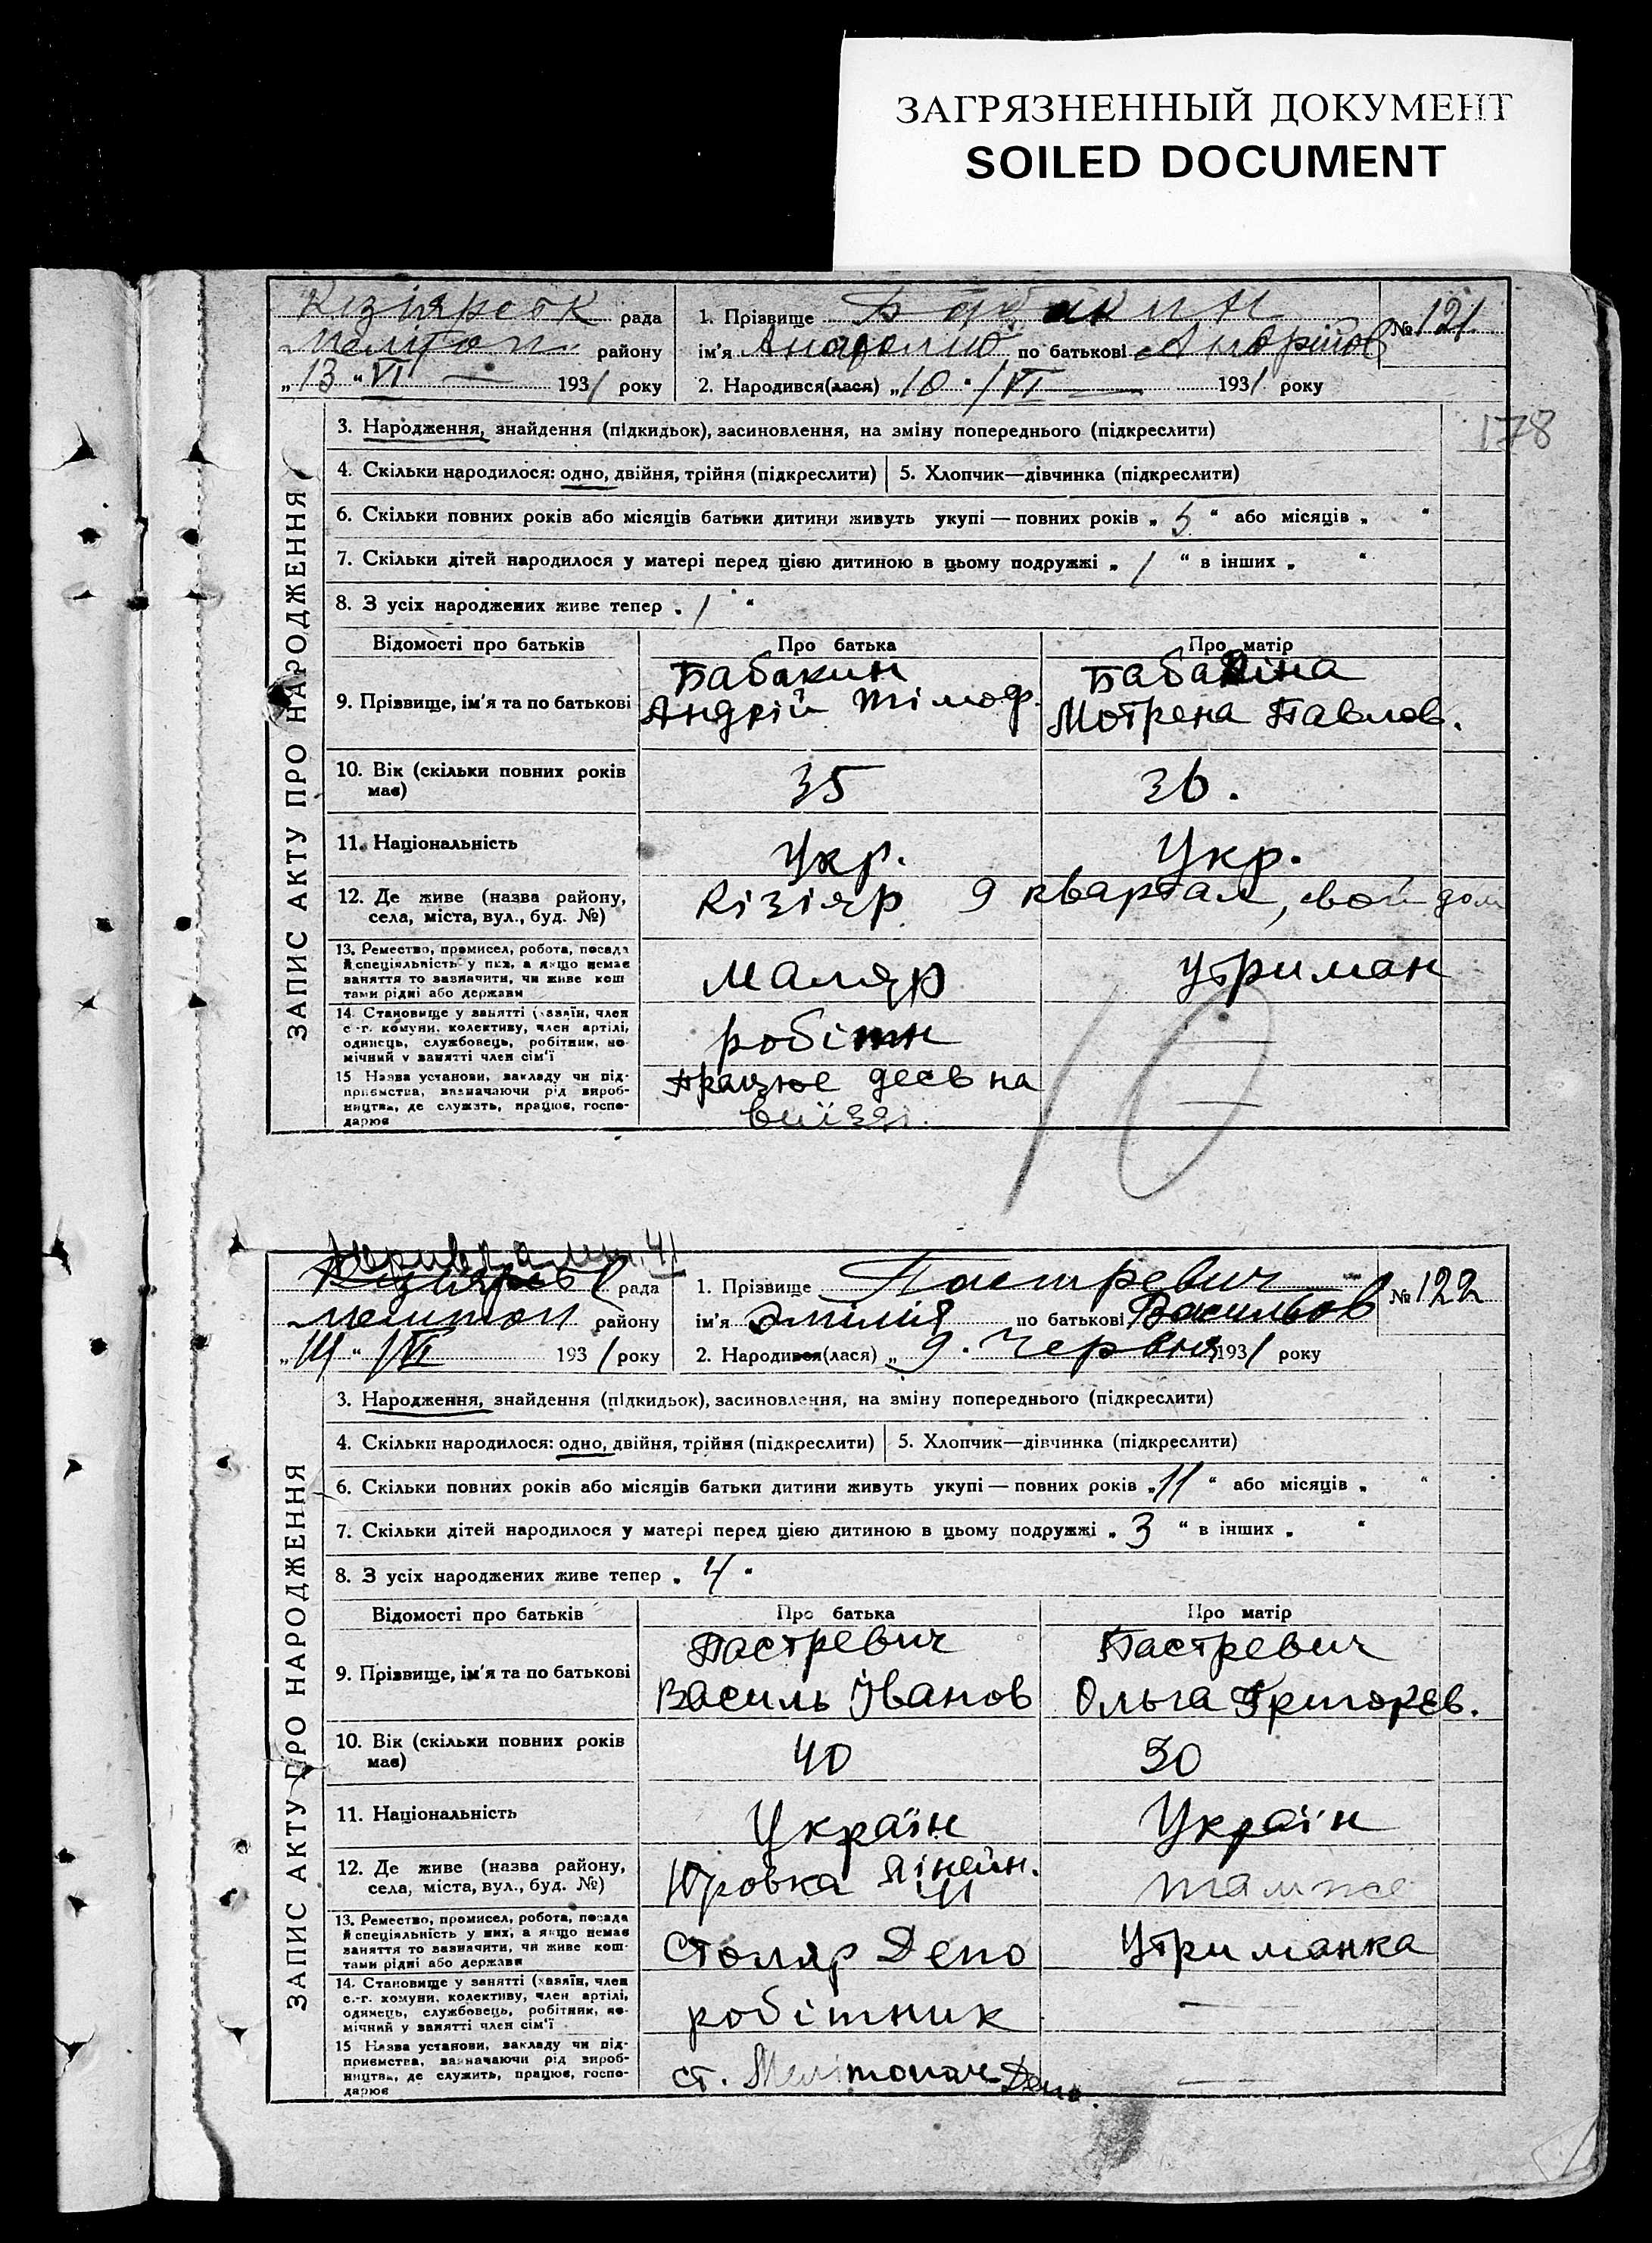 ЗАГРЯЗНЕННЫЙ ДОКУМЕНТ
SOILED DOCUMENT
Кізіярськ рада
Мелітоп. району
„13“ VI — 1931 року
1. Прізвище Бабакин
ім'я Анатолий по батькові Андрійов
№ 121
2. Народився(лася) „10“ / VI — 1931 року
178
ЗАПИС АКТУ ПРО НАРОДЖЕННЯ
3. Народження, знайдення (підкидьок), засиновлення, на зміну попереднього (підкреслити)
4. Скільки народилося: одно, двійня, трійня (підкреслити) 5. Хлопчик—дівчинка (підкреслити)
6. Скільки повних років або місяців батьки дитини живуть укупі — повних років „ 5 “ або місяців „ “
7. Скільки дітей народилося у матері перед цією дитиною в цьому подружжі „ 1 “ в інших „ “
8. З усіх народжених живе тепер „ 1 “
Відомості про батьків Про батька Про матір
9. Прізвище, ім'я та по батькові
Бабакин
Андрій Тімоф.
Бабакіна
Мотрена Павлов.
10. Вік (скільки повних років
має)
35 36.
11. Національність Укр. Укр.
12. Де живе (назва району,
села, міста, вул., буд. №)
Кізіяр 9 квартал, свой дом
13. Ремество, промисел, робота, посада
й спеціяльність у них, а якщо немає
заняття то зазначити, чи живе кош
тами рідні або держави
Маляр утриман
14. Становище у занятті (хазяїн, член
с.-г. комуни, колективу, член артілі,
одинець, службовець, робітник, по-
мічний у занятті член сім'ї
робітн —
15 Назва установи, закладу чи під-
приємства, зазначаючи рід вироб-
ництва, де служить, працює, госпо-
дарює
Працює десь на
виїзді. —
10
41
рада
Мелитоп району
„14“ / VI 1931 року
1. Прізвище Пастревич
ім'я Эмілія по батькові Васильов
№ 122
2. Народився(лася) „9. Червня 1931 року
ЗАПИС АКТУ ПРО НАРОДЖЕННЯ
3. Народження, знайдення (підкидьок), засиновлення, на зміну попереднього (підкреслити)
4. Скільки народилося: одно, двійня, трійня (підкреслити) 5. Хлопчик—дівчинка (підкреслити)
6. Скільки повних років або місяців батьки дитини живуть укупі — повних років „ 11 “ або місяців „ “
7. Скільки дітей народилося у матері перед цією дитиною в цьому подружжі „ 3 “ в інших „ “
8. З усіх народжених живе тепер „ 4 “
Відомості про батьків Про батька Про матір
9. Прізвище, ім'я та по батькові
Пастревич
Василь Іванов
Пастревич
Ольга Григорєв.
10. Вік (скільки повних років
має)
40 30
11. Національність Україн Україн
12. Де живе (назва району,
села, міста, вул., буд. №)
Юровка Лінейн.
41
также
13. Ремество, промисел, робота, посада
й спеціяльність у них, а якщо немає
заняття то зазначити, чи живе кош-
тами рідні або держави
Столяр Депо Утриманка
14. Становище у занятті (хазяїн, член
с.-г. комуни, колективу, член артілі,
одинець, службовець, робітник, по-
мічний у занятті член сім'ї
робітник —
15 Назва установи, закладу чи під-
приємства, зазначаючи рід вироб-
ництва, де служить, працює, госпо-
дарює
ст. Мелітополь Депо. —